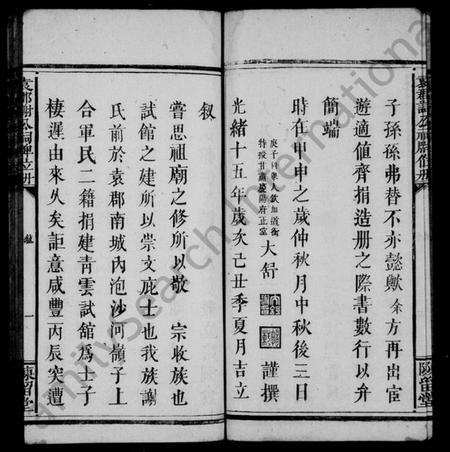 子孫孫弗替不亦懿歟余方再出宦
遊適値齊捐造册之際書數行以弁
簡端
時在甲申之歲仲秋月中秋後三日
大舒
謹撰
光緒十五年歲次己丑季夏月吉立
敘
嘗思祖廟之修所以敬 宗收族也
試館之建所以崇文庇士也我族謝
氏前於袁郡南城內泡沙河嶺子上
合軍民二籍捐建青雲試館爲士子
棲遲由來久矣詎意咸豐丙辰突遭
袁郡謝公祠牌位册
敘
一
陳留堂
FamilySearch International